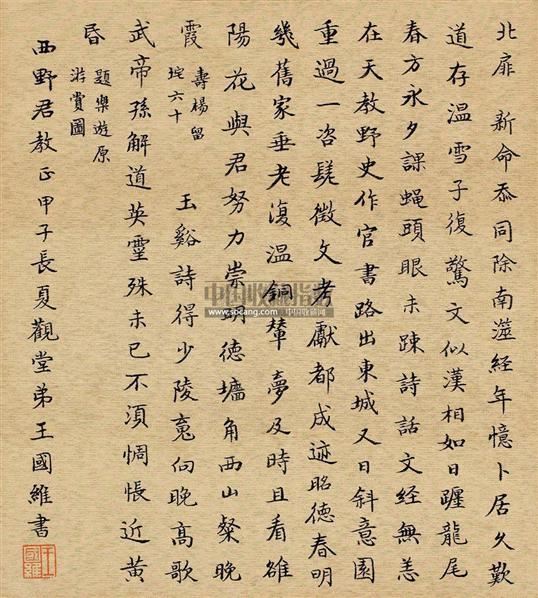 北扉新命忝同除南澨経年憶卜居久歎
道存溫雪子復驚文似漢相如日躔龍尾
春方永夕課蝇頭眼未踈詩話文経無恙
在天教野史作官書路出東城又日斜意園
重過一咨嗟徵文考獻都成迹昭德春明
幾舊家垂老復温銅輦夢及時且看雒
陽花與君努力崇明德墻角西山粲晚
霞
壽楊留
垞六十
玉谿詩得少陵䰟向晚高歌
武帝孫解道英靈殊未已不湏惆悵近黄
昏
題樂遊原
游賞圖
西野君教正甲子長夏觀堂弟王國維書
王國維
中国收藏指南
www.socang.com 中国收藏网